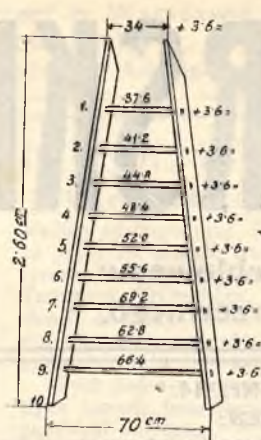 34 + 3·6=
1. 37·6 + 3·6=
2. 41·2 + 3·6=
3. 44·8 + 3·6=
4 48·4 + 3·6=
5. 52·0 + 3·6=
6. 55·6 + 3·6=
7. 69·2 + 3·6=
8. 62·8 + 3·6=
9. 66·4 + 3·6=
10
2·60 cm
70 cm